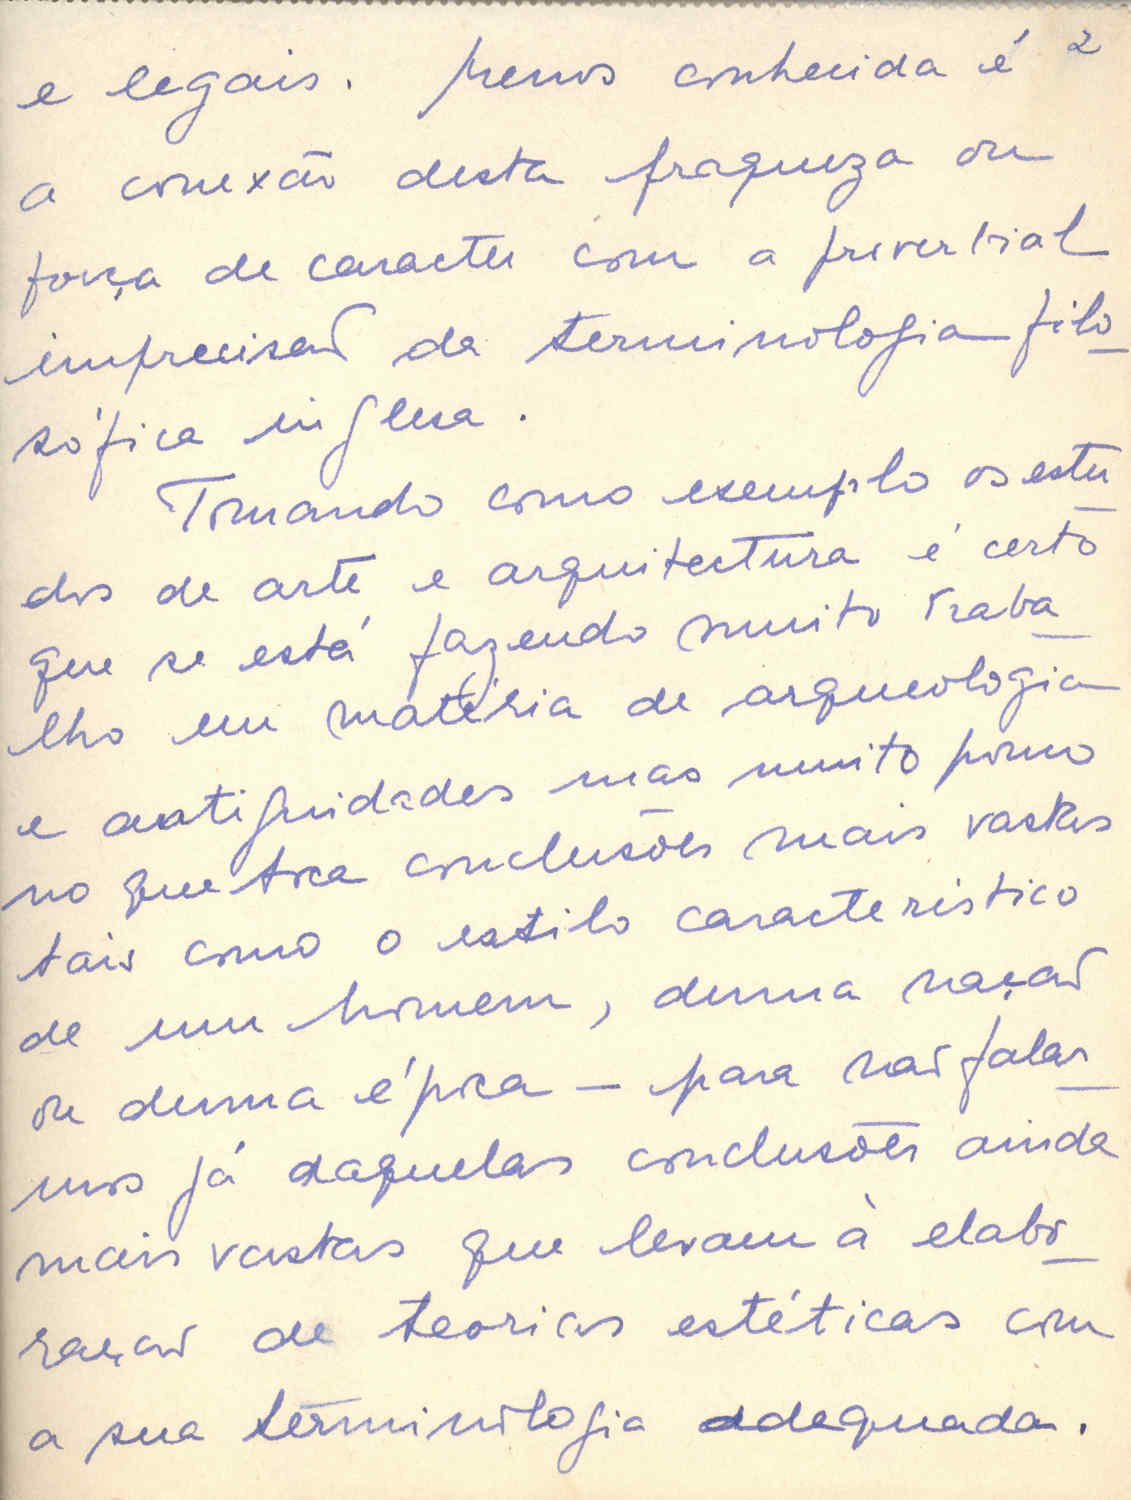 e legais. Menos conhecida é 2
a conexão desta fraqueza ou
força de caracter com a proverbial
imprecisão da terminologia filo_
sófica inglesa.
Tomando como exemplo os estu_
dos de arte e arquitectura é certo
que se está fazendo muito traba_
lho em matéria de arqueologia
e antiguidades mas muito pouco
no que toca conclusões mais vastas
tais como o estilo caracteristico
de um homem, duma nação
ou duma época — para não falar_
mos já daquelas conclusões ainda
mais vastas que levam à elabo_
ração de teorias estéticas com
a sua terminologia adequada.